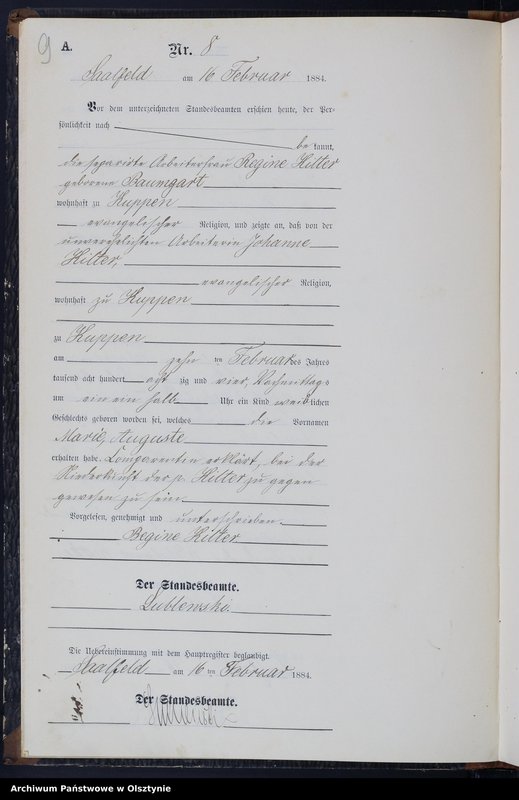 9
A.
Nr. 8
Saalfeld am 16 Februar 1884.
Vor dem unterzeichneten Standesbeamten erschien heute, der Per-
sönlichkeit nach
be kannt,
die separirte Arbeiterfrau Regine Hitter
geborene Baumgart
wohnhaft zu Kuppen
evangelischer Religion, und zeigte an, daß von der
unverehelichten Arbeiterin Johanne
Hitter,
evangelischer Religion,
wohnhaft zu Kuppen
zu Kuppen
am zehn ten Februar des Jahres
tausend acht hundert acht zig und vier, Nachmittags
um ein ein halb Uhr ein Kind weiblichen
Geschlechts geboren worden sei, welches die Vornamen
Marie, Auguste
erhalten habe. Comparentin erklärt, bei der
Niederkunft der p. Hitter zu gegen
gewesen zu sein.
Vorgelesen, genehmigt und unterschrieben.
Regine Hitter
Der Standesbeamte.
Lublewski.
Die Uebereinstimmung mit dem Hauptregister beglaubigt.
Saalfeld am 16 ten Februar 1884.
Der Standesbeamte.
Archiwum Państwowe w Olsztynie